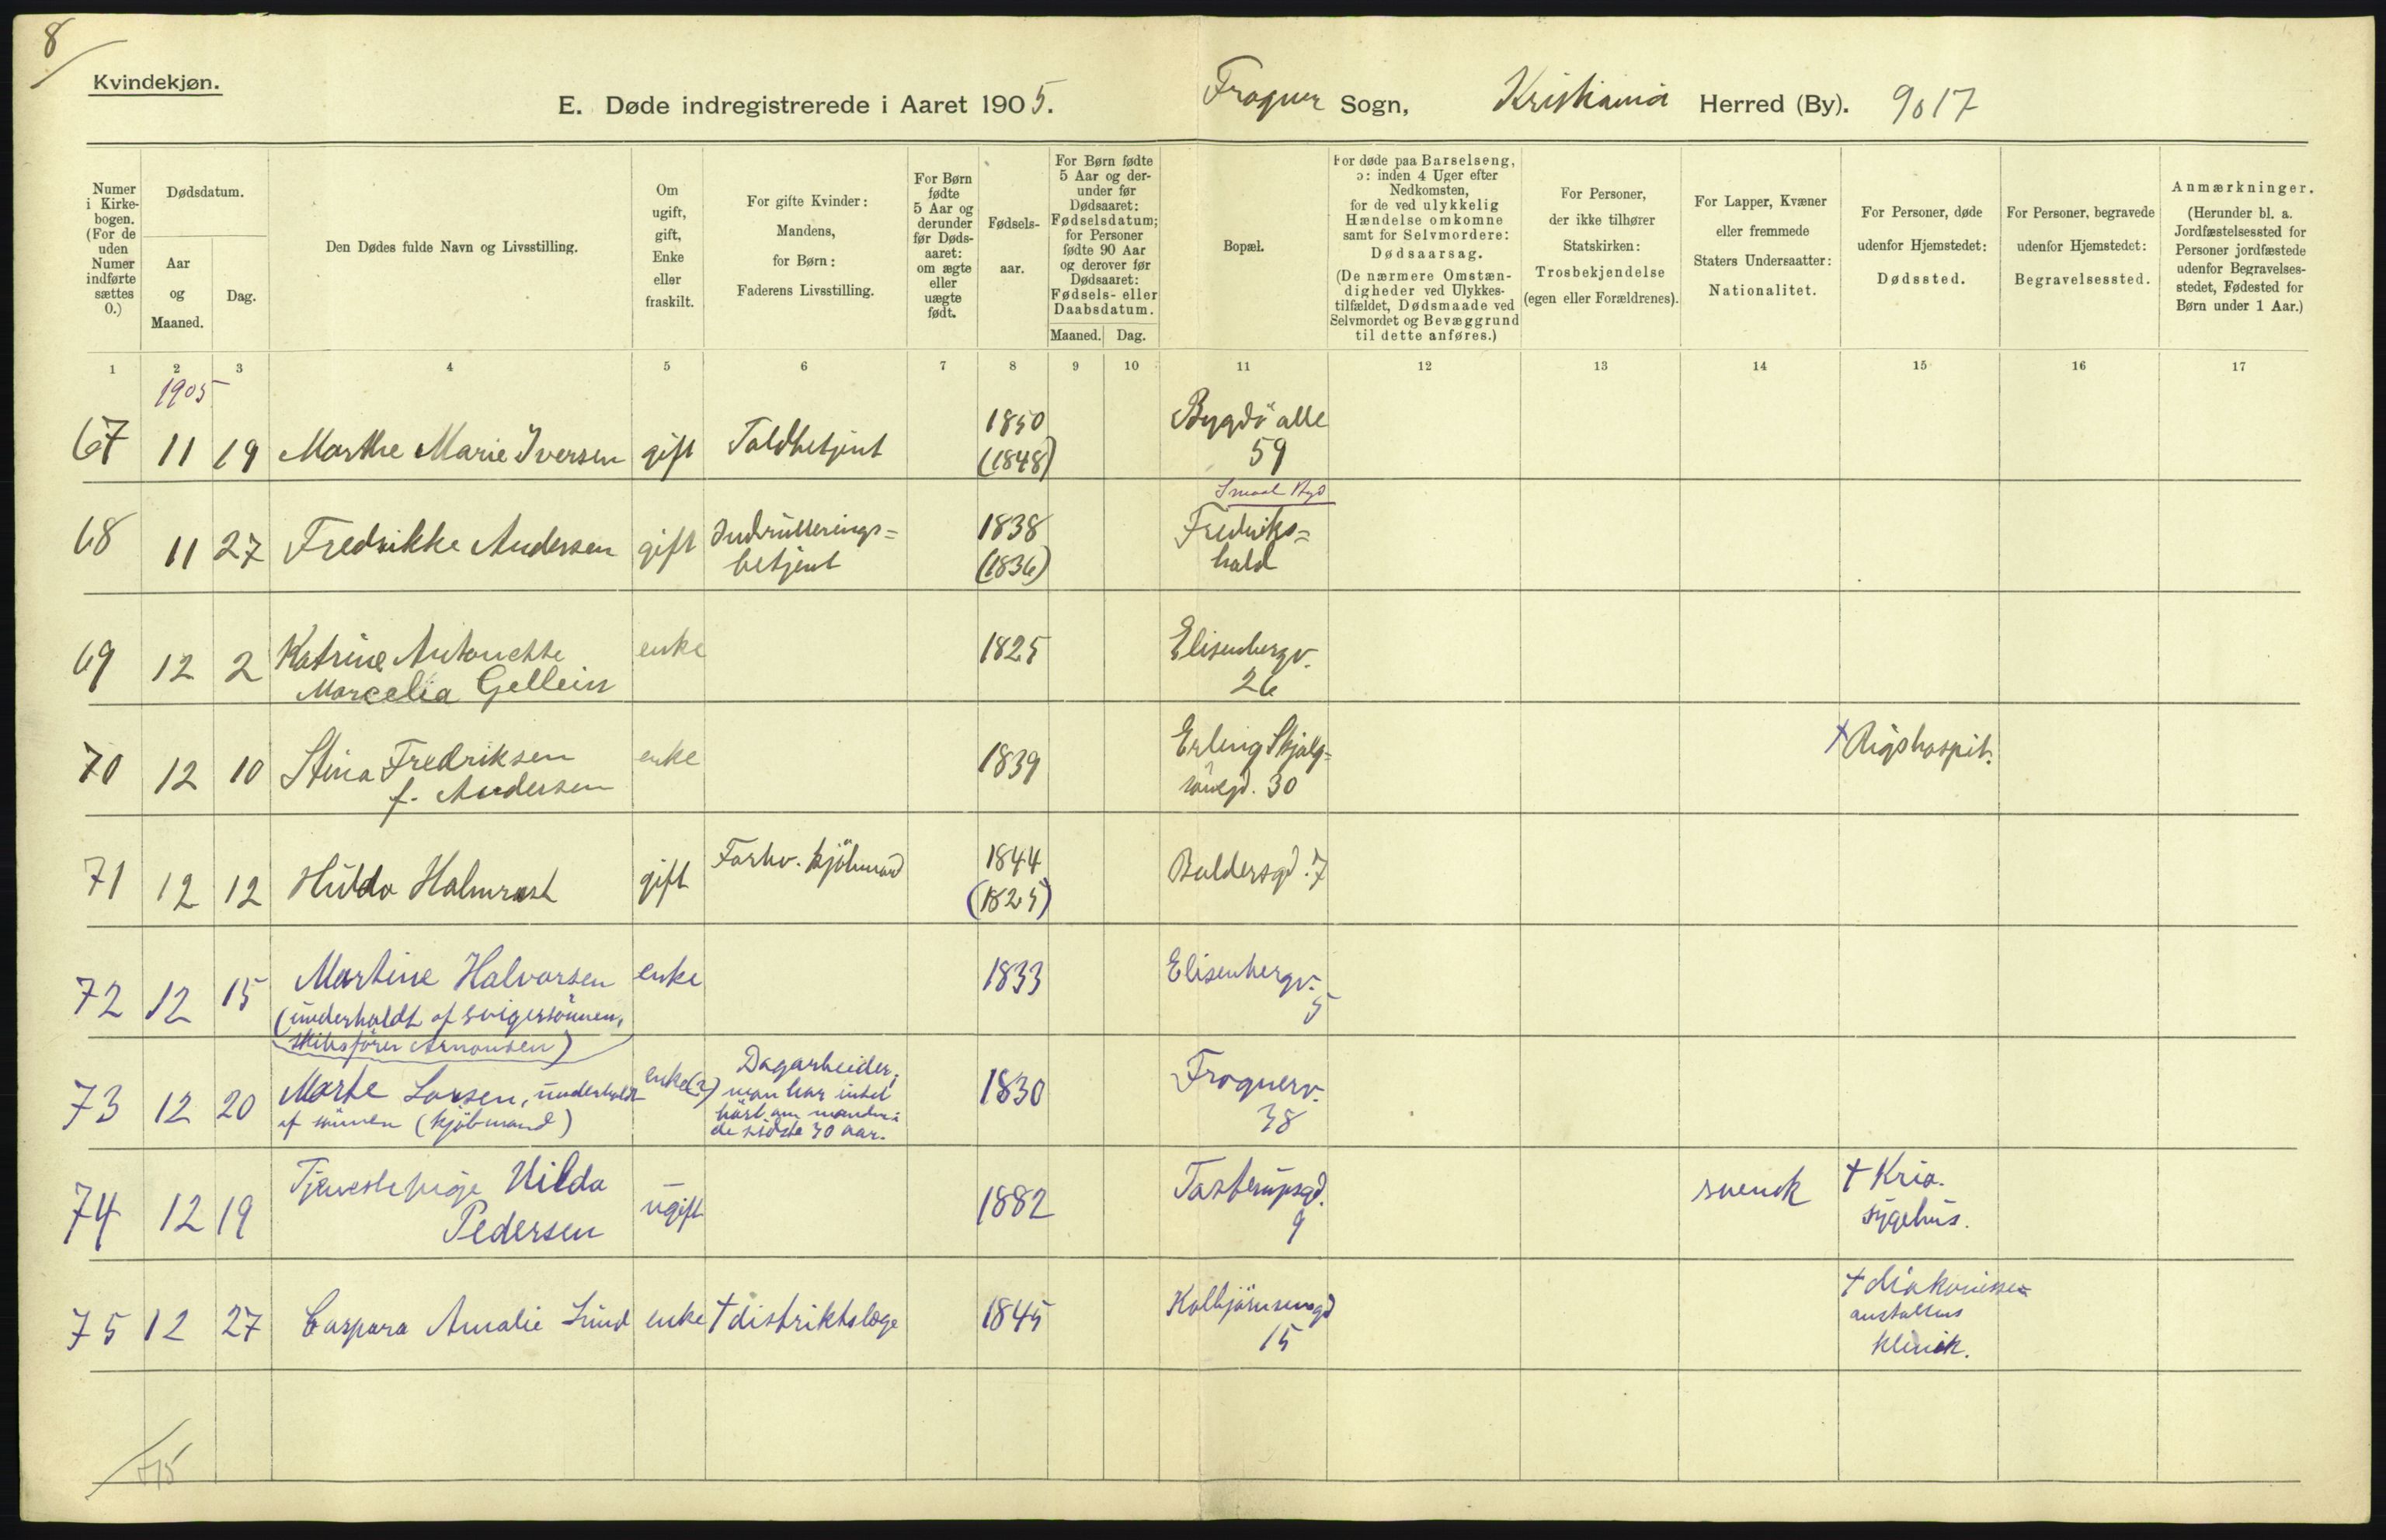 8
Kvindekjøn.
E. Døde indregistrerede i Aaret 1905. Frogner Sogn, Kristiania Herred (By). 9017
Numer i Kirkebogen. (For de uden Numer indførte sættes 0.)
Dødsdatum.
Aar og Maaned.
Dag.
Den Dødes fulde Navn og Livsstilling.
Om ugift, gift, Enke eller fraskilt.
For gifte Kvinder: Mandens, for Børn: Faderens Livsstilling.
For Børn fødte 5 Aar og derunder før Dødsaaret: om ægte eller uægte født.
Fødselsaar.
For Børn fødte 5 Aar og derunder før Dødsaaret: Fødselsdatum; for Personer fødte 90 Aar og derover før Dødsaaret: Fødsels- eller Daabsdatum.
Maaned. Dag.
Bopæl.
For døde paa Barselseng, ɔ: inden 4 Uger efter Nedkomsten, for de ved ulykkelig Hændelse omkomne samt for Selvmordere: Dødsaarsag. (De nærmere Omstændigheder ved Ulykkestilfældet, Dødsmaade ved Selvmordet og Bevæggrund til dette anføres.)
For Personer, der ikke tilhører Statskirken: Trosbekjendelse (egen eller Forældrenes).
For Lapper, Kvæner eller fremmede Staters Undersaatter: Nationalitet.
For Personer, døde udenfor Hjemstedet: Dødssted.
For Personer, begravede udenfor Hjemstedet: Begravelsessted.
Anmærkninger. (Herunder bl. a. Jordfæstelsessted for Personer jordfæstede udenfor Begravelsesstedet, Fødested for Børn under 1 Aar.)
1 2 3 4 5 6 7 8 9 10 11 12 13 14 15 16 17
1905
67 11 19 Marthe Marie Iversen gift Toldbetjent 1850 (1848) Bygdö alle 59
68 11 27 Fredrikke Andersen gift Indrulleringsbetjent 1838 (1836) Fredrikshald
69 12 2 Katrine Antonette Marcelia Gellein enke 1825 Elisenbergv. 26
70 12 10 Stina Fredriksen f. Andersen enke 1839 Erling Skjalgsönsgd. 30 † Rigshospit.
71 12 12 Hulda Halmrast gift Forhv. kjöbmand 1844 (1825) Baldersgd. 7
72 12 15 Martine Halvorsen (underholdt af svigersönnen, skibsförer Arnontsen) enke 1833 Elisenbergv. 5
73 12 20 Marte Larsen, underholdt af sönnen (kjöbmand) enke(?) Dagarbeider; man har intet hört om manden i de sidste 30 aar. 1830 Frognerv. 38
74 12 19 Tjenestepige Hilda Pedersen ugift 1882 Tostrupsgd. 9 svensk † Kria. sygehus.
75 12 27 Caspara Amalie Lund enke † distriktslæge 1845 Kolbjörnsensgd 15 † diakonisseanstaltens klinik.